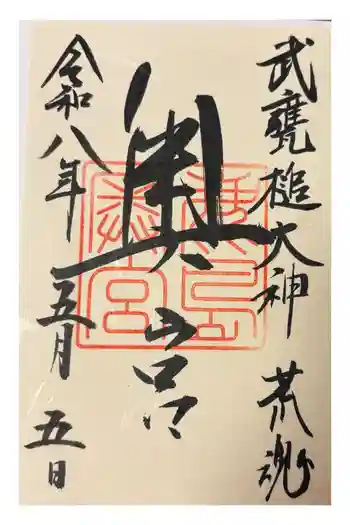 武甕槌大神 荒魂
奥宮
令和八年五月五日